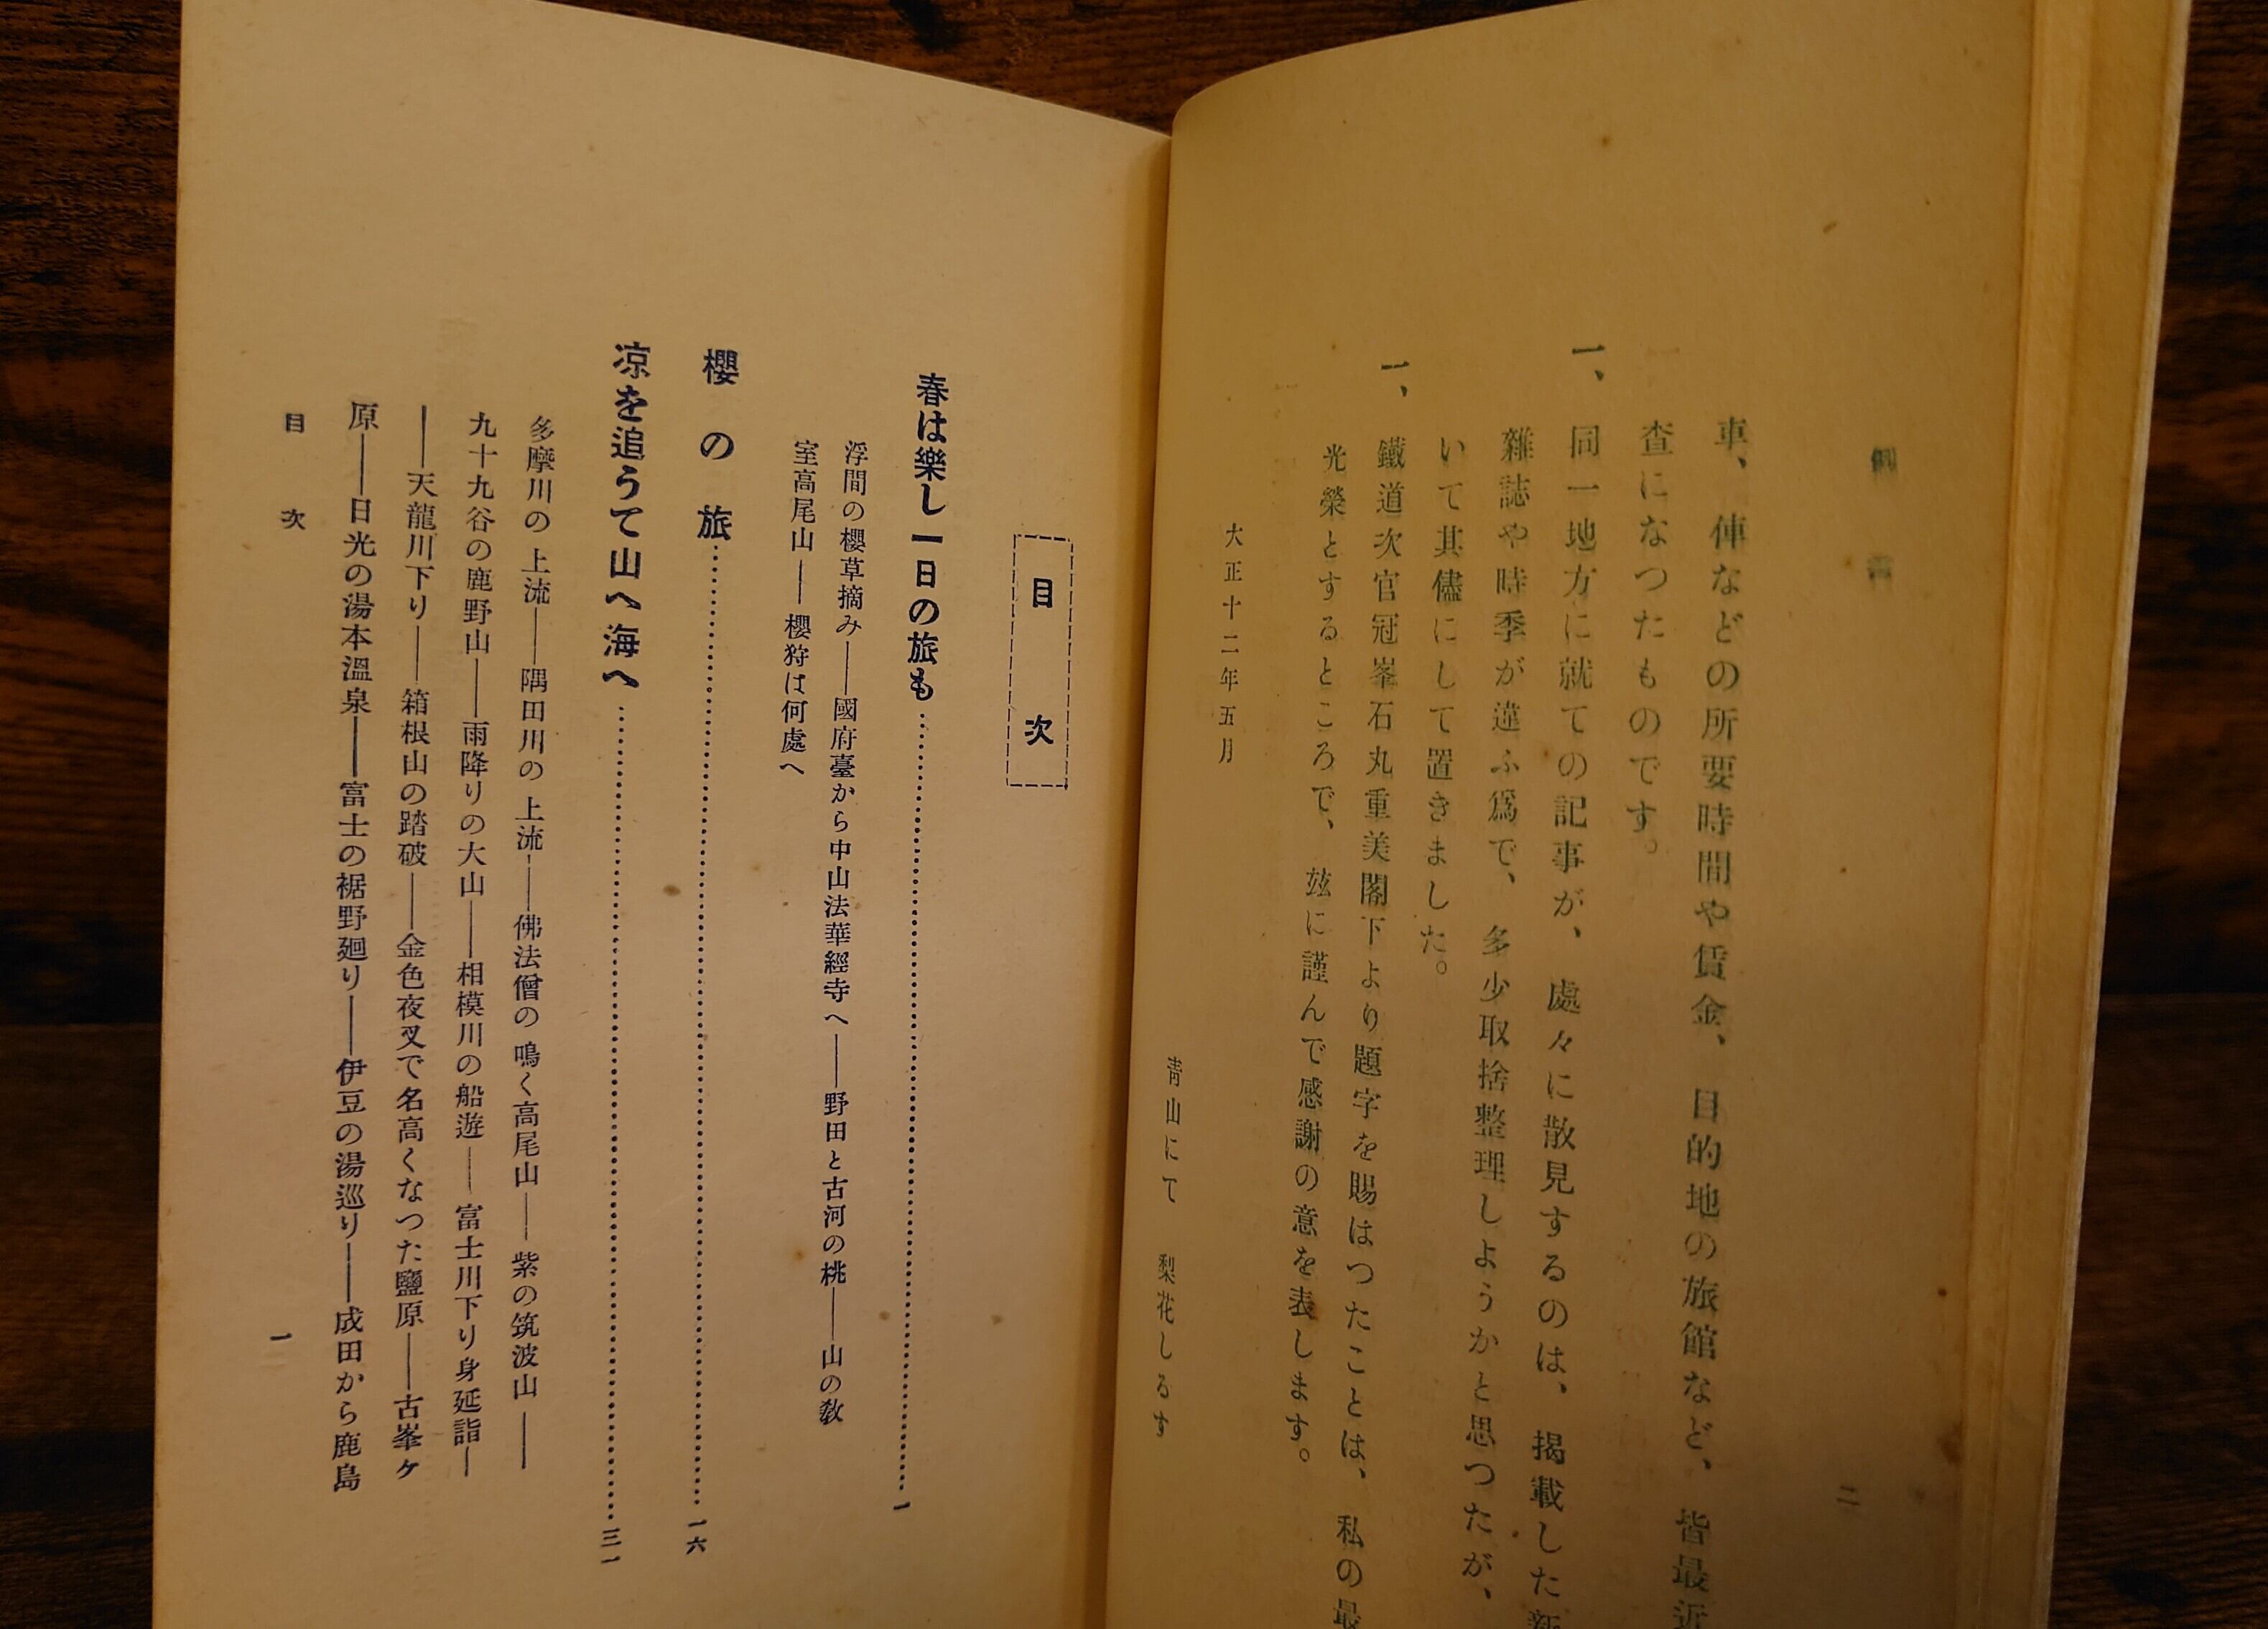 例言
車、俥などの所要時間や賃金、目的地の旅館など、皆最近
査になつたものです。
一、同一地方に就ての記事が、處々に散見するのは、掲載した新
雜誌や時季が違ふ爲で、多少取捨整理しようかと思つたが、
いて其儘にして置きました。
一、鐵道次官冠峯石丸重美閣下より題字を賜はつたことは、私の最
光榮とするところで、玆に謹んで感謝の意を表します。
大正十二年五月
靑山にて 梨花しるす
二
目次
春は樂し一日の旅も……一
浮間の櫻草摘み――國府臺から中山法華經寺へ――野田と古河の桃――山の敎
室高尾山――櫻狩は何處へ
櫻の旅……一六
凉を追うて山へ海へ……三一
多摩川の上流――隅田川の上流――佛法僧の鳴く高尾山――紫の筑波山――
九十九谷の鹿野山――雨降りの大山――相模川の船遊――富士川下り身延詣―
―天龍川下り――箱根山の踏破――金色夜叉で名高くなつた鹽原――古峯ケ
原――日光の湯本溫泉――富士の裾野廻り――伊豆の湯巡り――成田から鹿島
目次
一